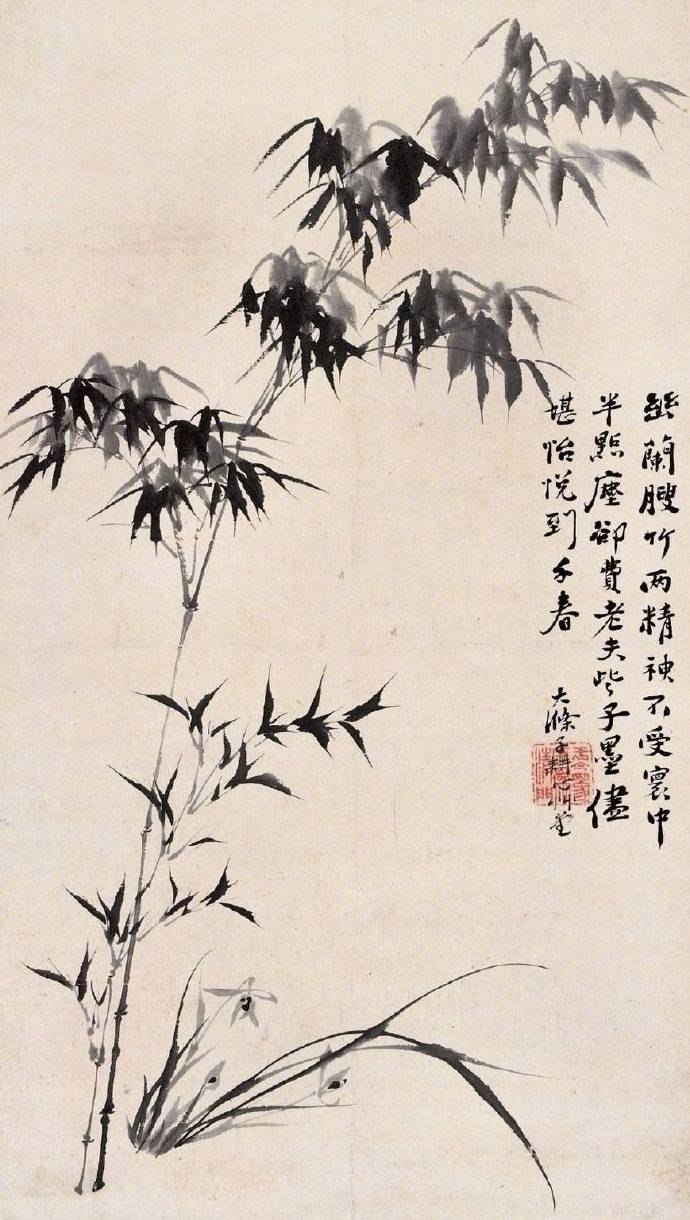 幽蘭瘦竹兩精神不受寰中
半點塵卻費老夫些子墨儘
堪怡悅到千春
大滌子耕心草堂